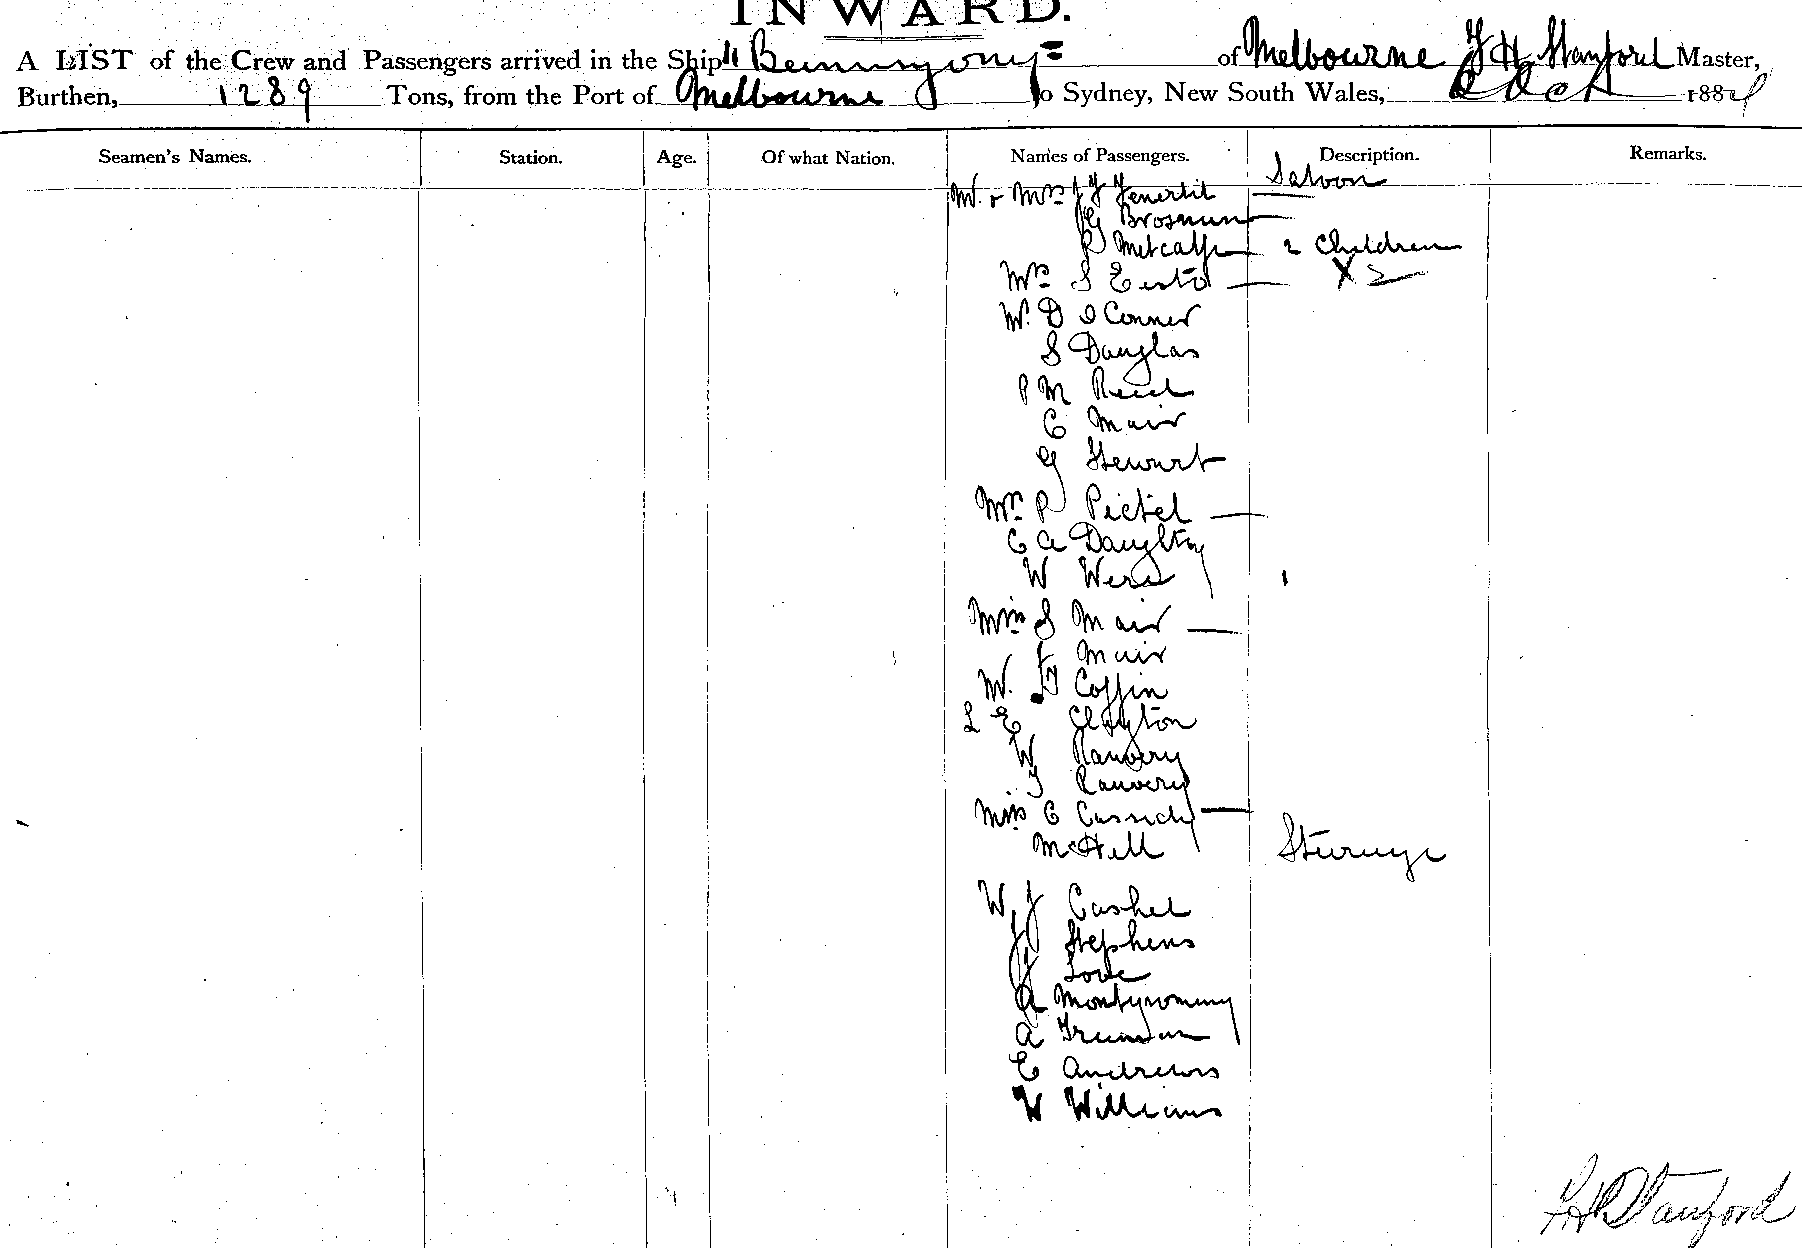 INWARD.
A LIST of the Crew and Passengers arrived in the Ship of Melbourne F H Stanford Master,
Burthen, 1289 Tons, from the Port of Melbourne to Sydney, New South Wales, Oct 188
Seamen's Names. Station. Age. Of what Nation. Names of Passengers. Description. Remarks.
Saloon
Mr & Mrs J F
G Brosnan
Metcalfe 2 Children
Mrs S X 2
Mr. D O Conner
S Douglas
P M Reid
C Mair
G Stewart
Mrs P
C A
W
Miss S Mair
Mair
Mr. Coffin
L E Clayton
W
Miss C Cassidy
McHill Steerage
W J Cashel
J Stephens
J Love
A Montgommery
A Truman
E Andrews
W Williams
F H Stanford